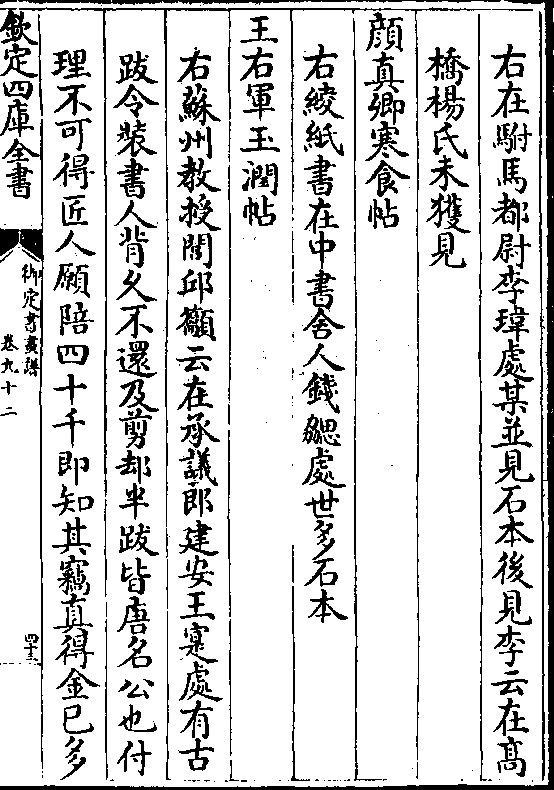 右在駙馬都尉李瑋處某並見石本後見李云在髙
橋楊氏未獲見
顔真卿寒食帖
右綾紙書在中書舍人錢勰處世多石本
王右軍玉潤帖
右蘇州教授閭邱籲云在承議郎建安王寔處有古
跋令裝書人背久不還及剪却半跋皆唐名公也付
理不可得匠人願陪四十千即知其竊真得金已多
欽定四庫全書
御定書畫譜
卷九十二
四十三